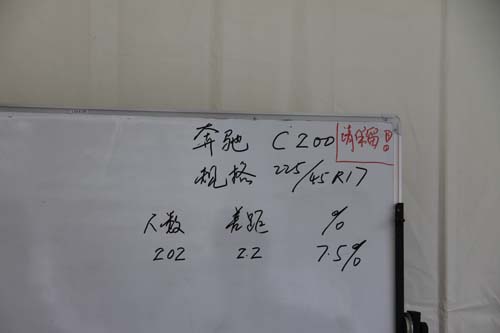 奔驰 C200 请保留!
规格 225/45R17
人数 差距 %
202 2.2 7.5%